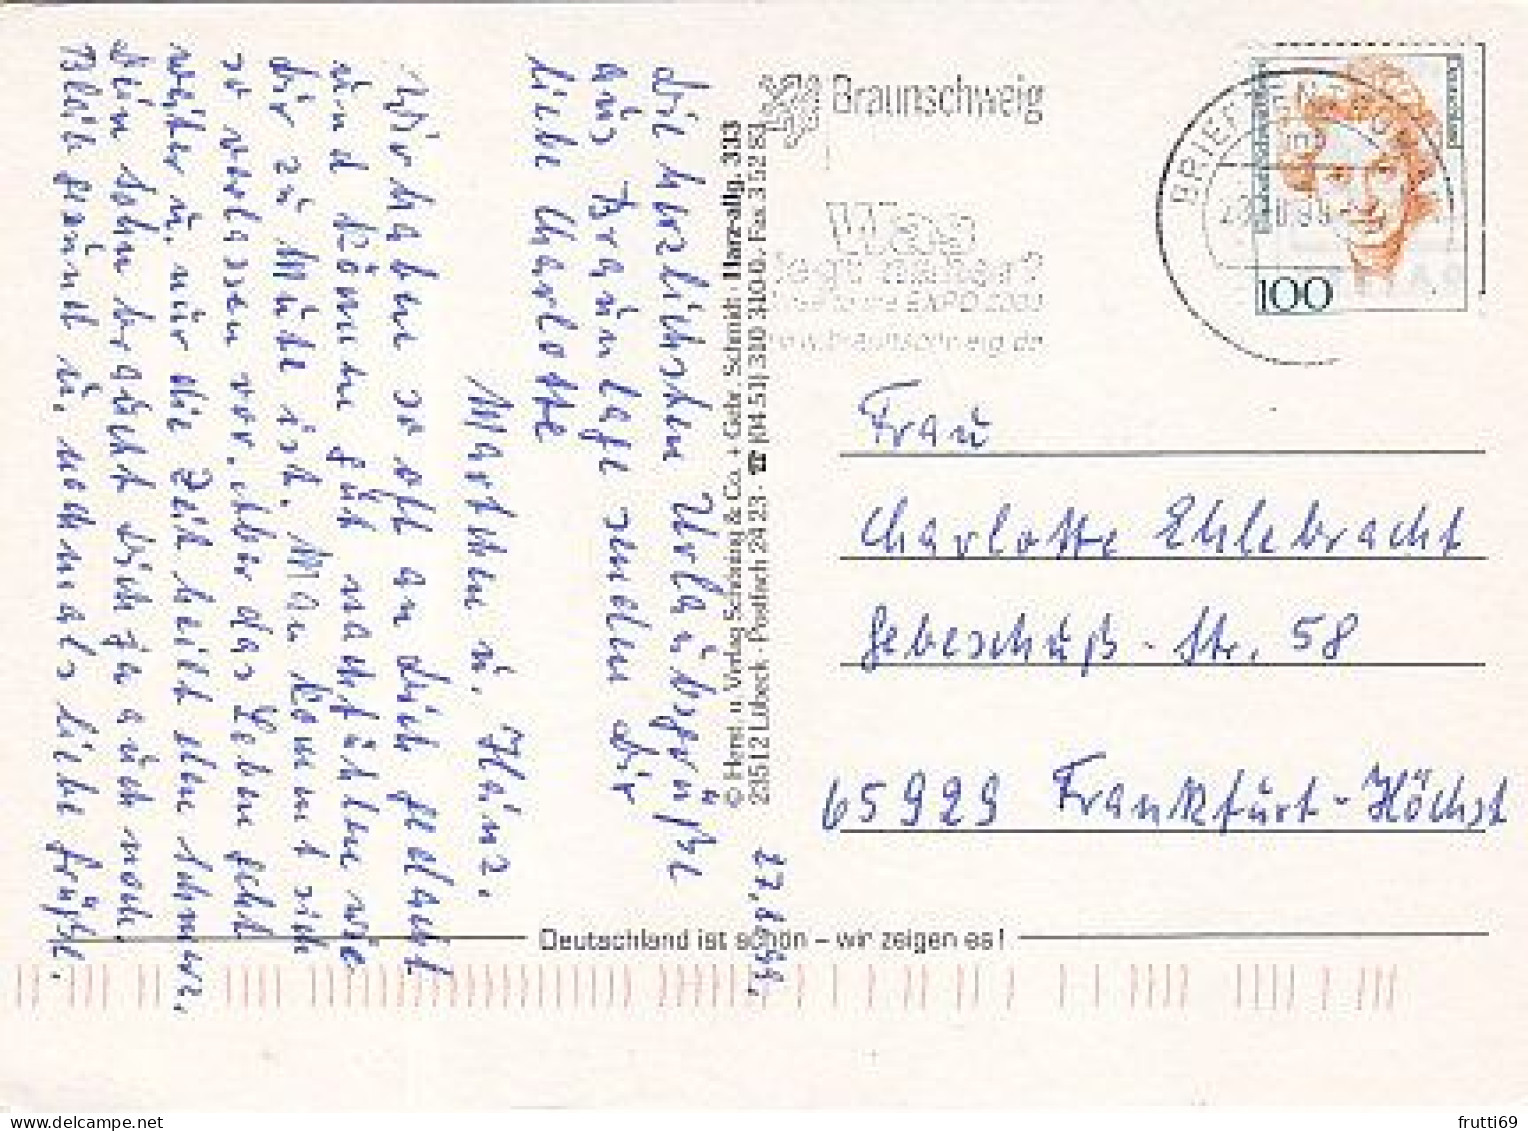 Braunschweig
Was
liegt näher?
EXPO 2000
www.braunschweig.de
BRIEFZENTRUM
Deutschland
100
Frau
Charlotte Ehlebracht
Gebeschuß-Str. 58
65929 Frankfurt-Höchst
27.8.99.
Liebe Charlotte
aus Braunlage senden Dir
die herzlichsten Urlaubsgrüße
Marthen u. Heinz.
Wir haben so oft an Dich gedacht
und können gut nachfühlen wie
Dir zu Mute ist. Man kommt sich
so verlassen vor. Aber das Leben geht
weiter u. nur die Zeit heilt den Schmerz.
Dein Sohn braucht Dich ja auch noch.
Bleib gesund u. nochmals liebe Grüße.
© Herst. u. Verlag Schöning & Co. + Gebr. Schmidt · Harz-allg. 333
23512 Lübeck · Postfach 24 23 · ☎ (04 51) 310 310 · Fax 3 52 83
Deutschland ist schön – wir zeigen es!
frutti69